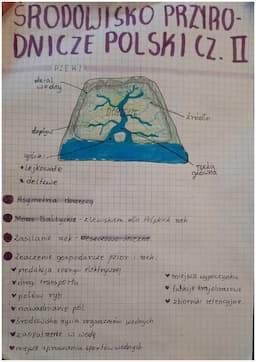 ŚRODOWISKO PRZYRO-
DNICZE POLSKI CZ. II
RZEKI
dział
wodny
DORZECZE
źródło
dopływ
ujścia:
• lejkowate
• deltowe
rzeka
główna
Asymetria dorzeczy
Morze Bałtyckie - zlewiskiem dla Polskich rzek
Zasilanie rzek -
Znaczenie gospodarcze jezior i rzek:
♥ produkcja energii elektrycznej
♥ drogi transportu
♥ połów ryb
♥ nawadnianie pól
♥ środowisko życia organizmów wodnych
♥ zaopatrzenie w wodę
♥ miejsce uprawiania sportów wodnych
♥ miejsca wypoczynku
♥ funkcje krajobrazowe
♥ zbiorniki retencyjne